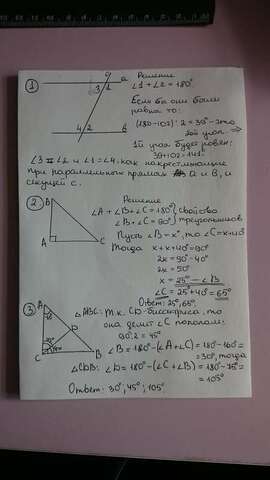 ① Решение
∠1 + ∠2 = 180°
Если бы они были
равны то:
(180-102) : 2 = 39° - это
2ой угол ⇒
1й угол будет равен:
39+102 = 141
∠3 = ∠2 и ∠1 = ∠4. как накрестлежащие
при параллельных прямых a и b, и
секущей c.
c
a
3 1
4 2
b
② Решение
∠A + ∠B + ∠C = 180° (свойство
∠B + ∠C = 90°) треугольников
Пусть ∠B = x°, то ∠C = x+40°
Тогда x + x + 40 = 90°
2x = 90° - 40°
2x = 50°
x = 25° - ∠B
∠C = 25° + 40° = 65°
Ответ: 25°, 65°.
B
A
C
③ △ABC: т.к. CD - биссектриса, то
она делит ∠C пополам:
90 : 2 = 45°
∠B = 180° - (∠A + ∠C) = 180° - 160° =
= 30°, тогда
△CDB: ∠D = 180° - (C + ∠B) = 180° - 75° =
= 105°
Ответ: 30°, 45°, 105°
A
D
C
B